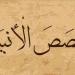 قصص الأنبي